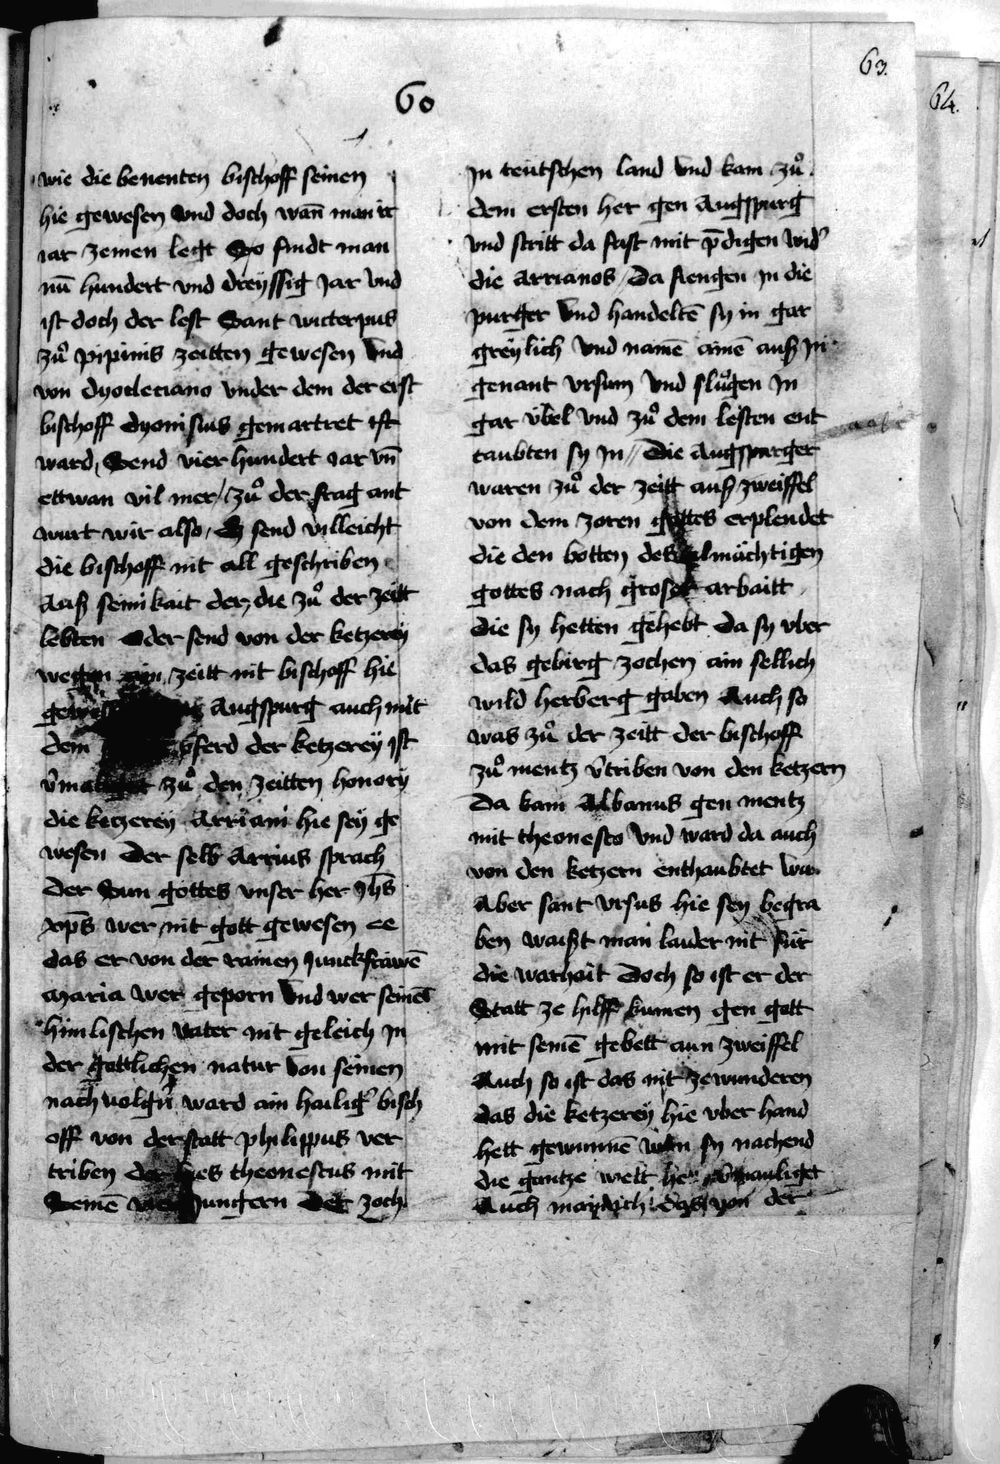 63.
64.
60
wie die benenten bischoff seinen
hie gewesen Vnd doch wan̄ man ir
iar zemen legt So findt man
nu̅ hundert vnd dreyssig Jar vnd
ist doch der lest Sant wicterpus
zuͦ pipinis zeitten gewesen Vnd
von dyocleciano vnder dem der erst
bischoff dyonisius gemartret ist
ward, Send vier hundert iar vn̄
ettwan vil mer / zuͦ der frag ant
wurt wir also, Es send villeicht
die bischoff nit all geschriben
Auß seinikait der, die zuͦ der zeitt
lebten Oder send von der ketzerey
wegen ain zeitt nit bischoff hie
Augspurg auch mit
dem pferd der ketzerey ist
zuͦ den zeitten honory
die ketzerey Arriani hie sey ge
wesen Der selb Arrius sprach
Der Sun gottes vnser her Jhs̄
xp̄s wer nit gott gewesen ee
das er von der rainen Junckfrawē
Maria wer geporn Vnd wer seinē
himlischen Vater nit geleich In
der gottlichen natur Von seinen
nachuolgrn̄ ward ain hailigʾ bisch
off von der statt philippus ver
triben der hies theonestus mit
Seinē Jungern Der zoch
In teutschen land Vnd kam zuͦ
dem ersten her gen Augspurg
vnd stritt da fast mit p̄digen widʾ
die Arrianos / Da fiengen In die
purger Vnd handeltē sy in gar
greylich Vnd namē ainē auß In
genant vrsum Vnd sluͦgen In
gar v̈bel Vnd zuͦ dem lesten ent
taubten sy In // Die Augspurger
waren zuͦ der zeitt auß zweiffel
von dem zoren gottes erplendet
die den botten des almächtigen
gottes nach groser arbaitt
die sy hetten gehebt Da sy vber
das gebirg zochen ain sellich
wild herberg gaben Auch so
was zuͦ der zeitt der bischoff
zuͦ mentz v̄triben von den ketzern
Da kam Albanus gen mentz
mit theonesto Vnd ward da auch
von den ketzern enthaubtet
Aber sant vrsus hie sey begra
ben waißt man lauder nit für
die warhait Doch so ist er der
Statt ze hilff kumen gen gott
mit seinē gebett aun zweiffel
Auch so ist das nit zewunderen
das die ketzerey hie vber hand
hett gewunnē wan sy nachend
die gantze welt
Auch das von der